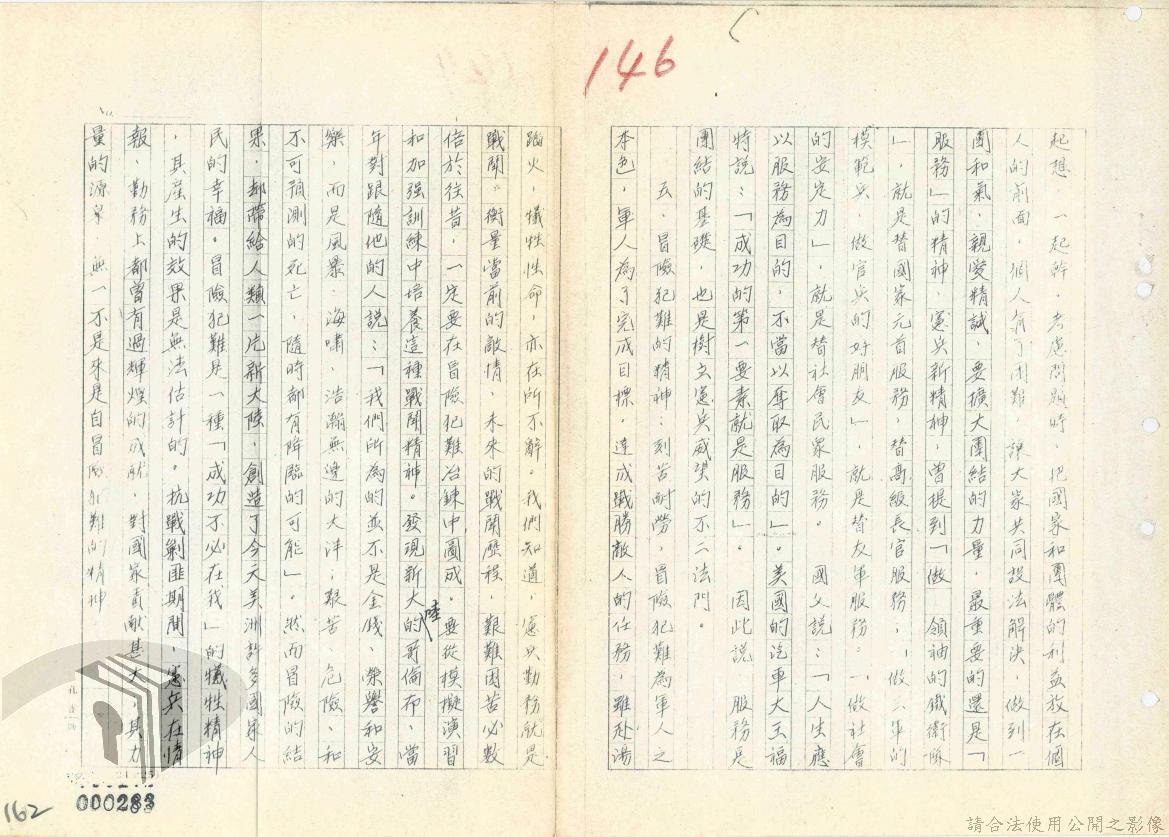 146
起想、一起幹，考慮問題時，把國家和團體的利益放在個
人的前面，個人有了困難，讓大家共同設法解決，做到一
團和氣，親愛精誠，要擴大團結的力量，最重要的還是「
服務」的精神，憲兵新精神，曾提到「做　領袖的鐵衛隊
」，就是替國家元首服務，替高級長官服務；「做三軍的
模範兵，做官兵的好朋友」，就是替友軍服務。「做社會
的安定力」，就是替社會民眾服務。　國父說：「人生應
以服務為目的，不當以奪取為目的」。美國的汽車大王福
特說：「成功的第一要素就是服務」。因此說　服務是
團結的基礎，也是樹立憲兵威望的不二法門。
五、冒險犯難的精神：刻苦耐勞，冒險犯難為軍人之
本色，軍人為了完成目標，達成戰勝敵人的任務，雖赴湯
蹈火，犧牲性命，亦在所不辭。我們知道，憲兵勤務就是
戰鬥。衡量當前的敵情，未來的戰鬥歷程，艱難困苦必數
倍於往昔，一定要在冒險犯難冶鍊中圖成。要從模擬演習
和加强訓練中培養這種戰鬥精神。發現新大陸的哥倫布，當
年對跟隨他的人說：「我們所為的並不是金錢、榮譽和安
樂，而是風暴、海嘯、浩瀚無邊的大洋；艱苦、危險、和
不可預測的死亡，隨時都有降臨的可能」。然而冒險的結
果，都帶給人類一片新大陸，創造了今天美洲許多國家人
民的幸福。冒險犯難是一種「成功不必在我」的犧牲精神
，其產生的效果是無法估計的。抗戰剿匪期間，憲兵在情
報、勤務上都曾有過輝煌的成就，對國家貢獻甚大，其力
量的源泉　無一不是來是自冒險犯難的精神
000283
162
請合法使用公開之影像